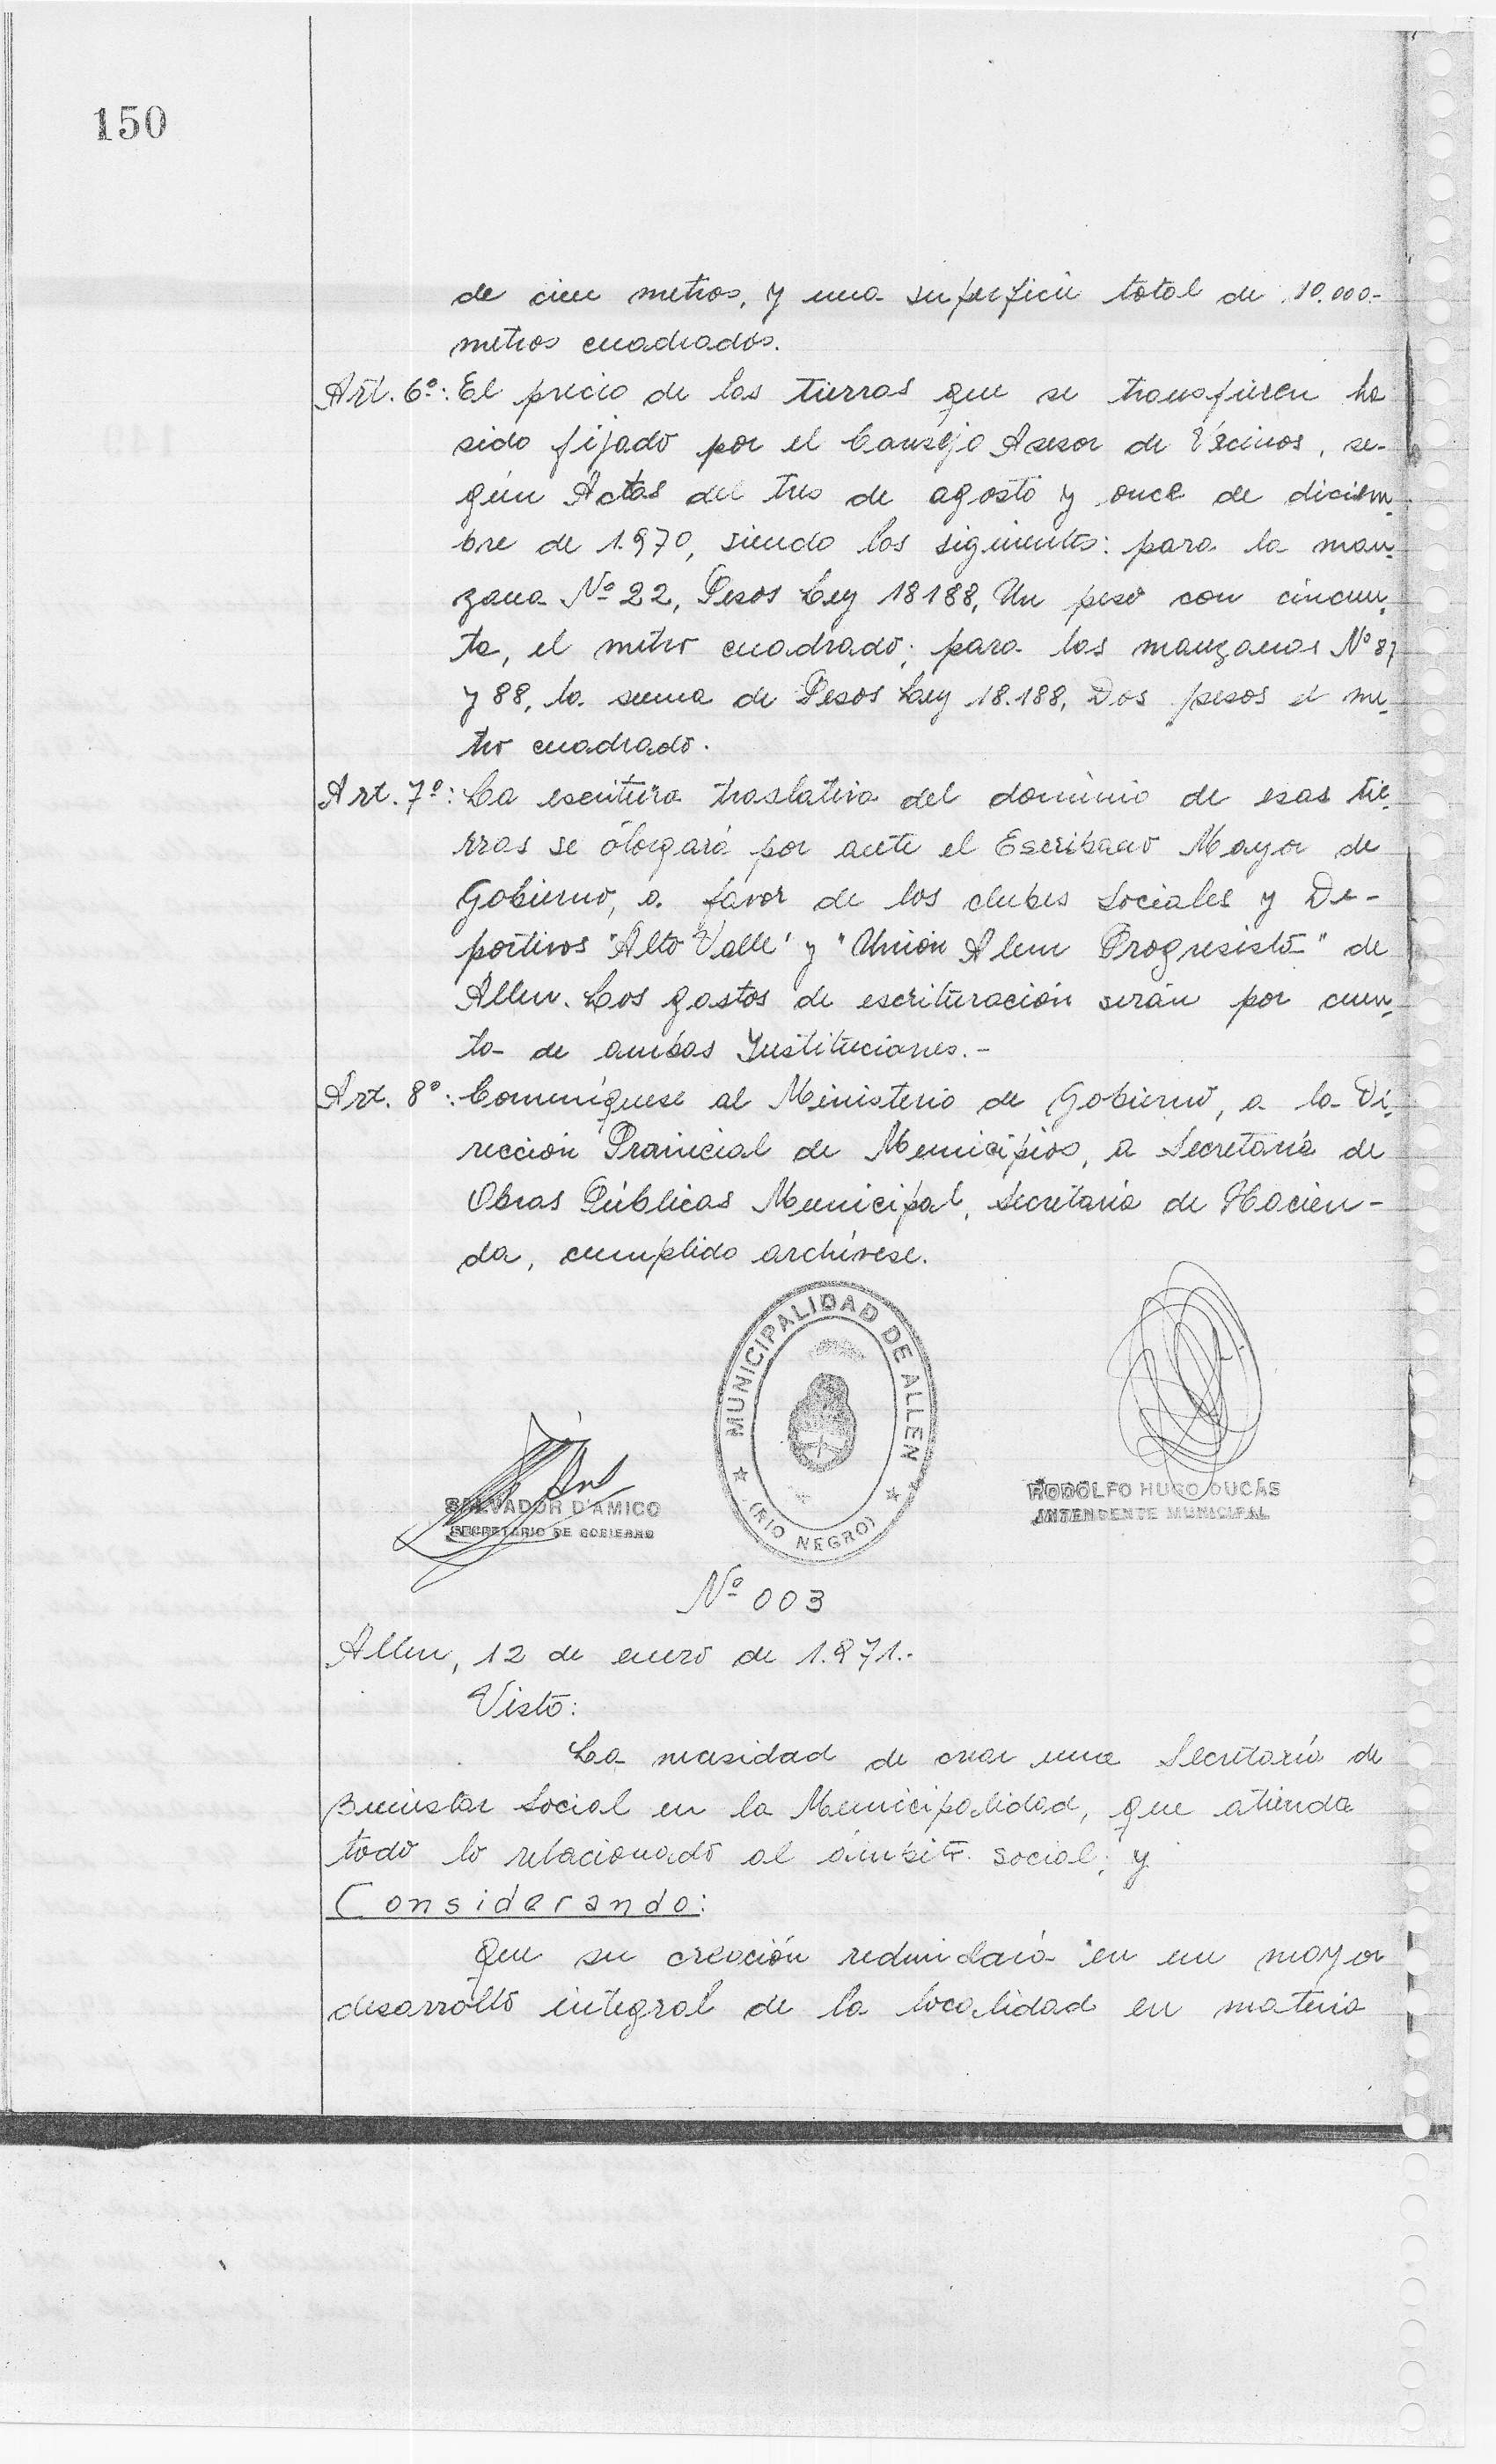 150
de cien metros, y una superficie total de 10.000.-
metros cuadrados.
Art. 6º: El precio de las tierras que se transfieren ha
sido fijado por el Consejo Asesor de Vecinos, se-
gún Actas del tres de agosto y once de diciem-
bre de 1.970, siendo los siguientes: para la man-
zana Nº 22, Pesos Ley 18188, Un peso con cincuen-
ta, el metro cuadrado; para las manzanas Nº 87
y 88, la suma de Pesos Ley 18.188, Dos pesos el me-
tro cuadrado.
Art. 7º: La escritura traslativa del dominio de esas tie-
rras se otorgará por ante el Escribano Mayor de
Gobierno, a favor de los clubes Sociales y De-
portivos "Alto Valle" y "Unión Alem Progresista" de
Allen. Los gastos de escrituración serán por cuen-
ta de ambas Instituciones.-
Art. 8º: Comuníquese al Ministerio de Gobierno, a la Di-
rección Provincial de Municipios, a Secretaría de
Obras Públicas Municipal, Secretaría de Hacien-
da, cumplido archívese.
MUNICIPALIDAD DE ALLEN
(RIO NEGRO)
SALVADOR D'AMICO
SECRETARIO DE GOBIERNO
RODOLFO HUGO DUCÁS
INTENDENTE MUNICIPAL
Nº 003
Allen, 12 de enero de 1.971.-
Visto:
La necesidad de crear una Secretaría de
Bienestar Social en la Municipalidad, que atienda
todo lo relacionado al ámbito social; y
Considerando:
Que su creación redundará en un mayor
desarrollo integral de la localidad en materia